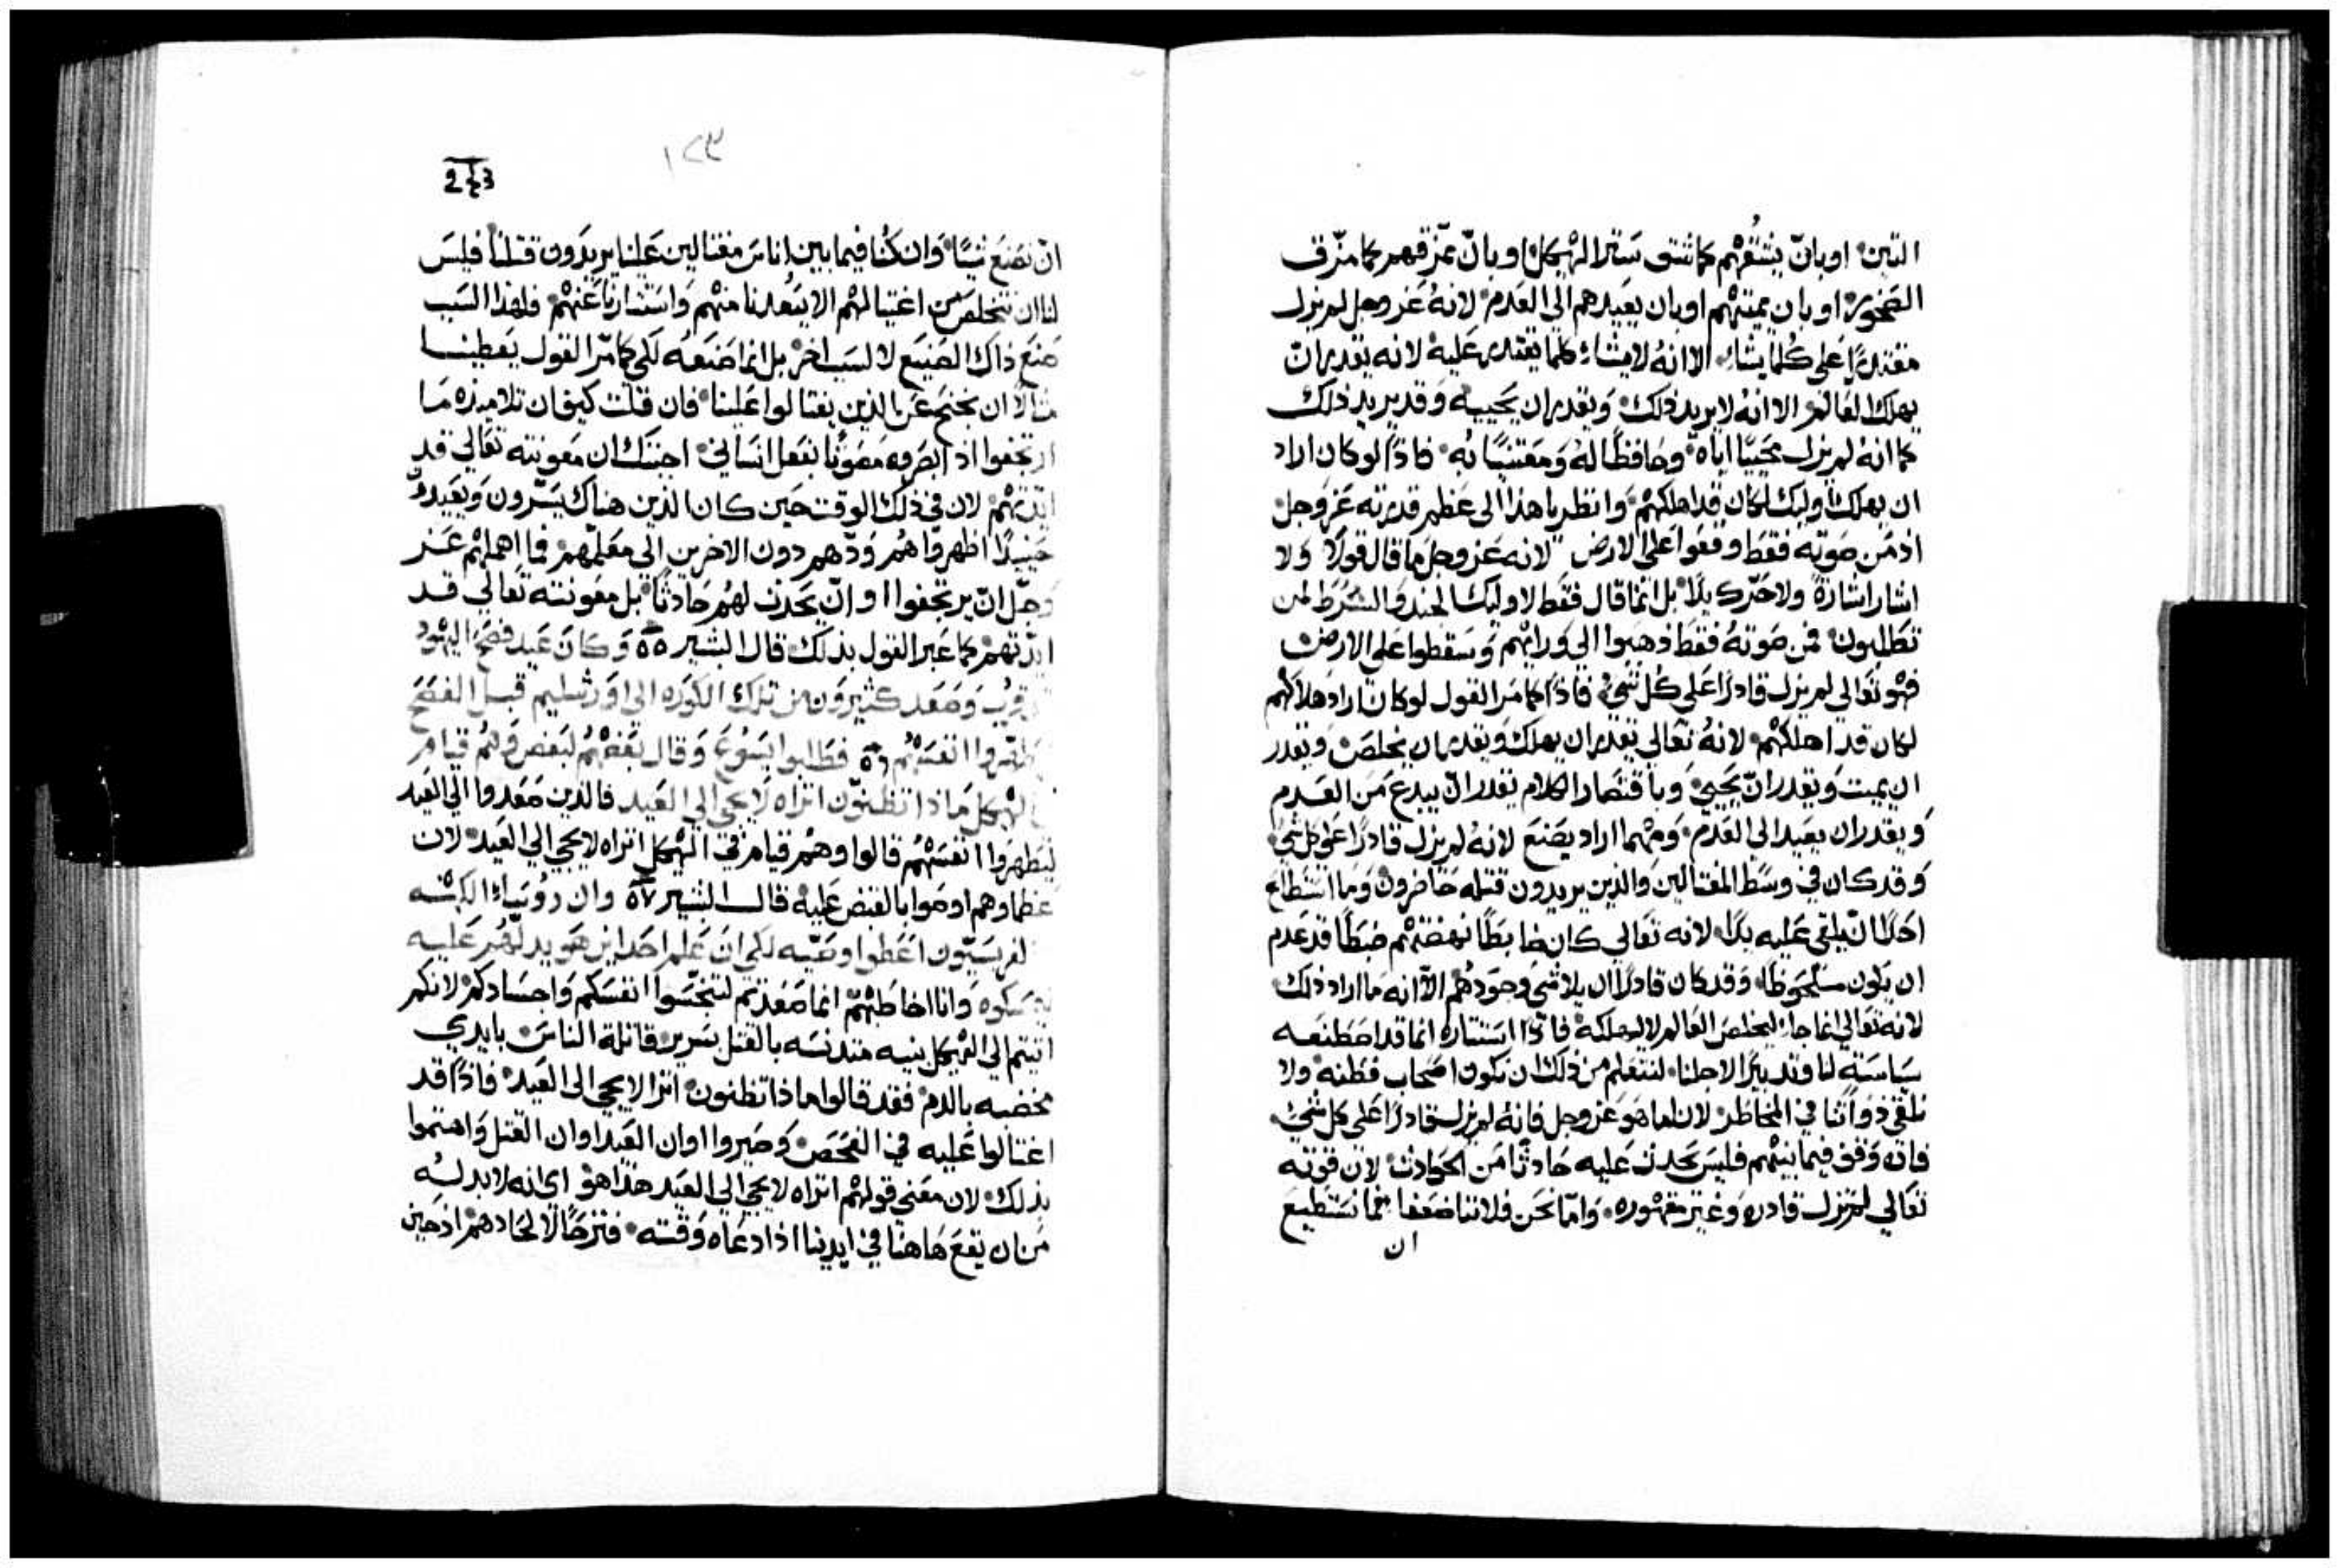 التين او بان يشقهم كما شق ستر الهيكل او بان يمزقهم كما مزق
الصخور او بان يميتهم او بان يعيدهم الى العدم لانه عز وجل لم يزل
مقتدرًا على كلما يشاء الا انه لا يشاء كلما يقتدر عليه لانه يقدر ان
يهلك العالم الا انه لا يريد ذلك ويقدر ان يحييه وقد يريد ذلك
كما انه لم يزل محييًا اياه وحافظًا له ومعتنيًا به فاذًا لو كان اراد
ان يهلك اوليك لكان قد اهلكهم وانظر يا هذا الى عظم قدرته عز وجل
اذ من صوته فقط وقعوا على الارض لانه عز وجل ما قال قولًا ولا
اشار اشارة ولا حرّك يدًا بل انما قال فقط لاوليك الجند والشرط لمن
تطلبون فمن صوته فقط ذهبوا الي ورايهم وسقطوا على الارض
فهو تعالي لم يزل قادرًا على كل شي فاذًا كما مر القول لو كان اراد هلاكهم
لكان قد اهلكهم لانه تعالي يقدر ان يهلك ويقدر ان يخلص ويقدر
ان يميت ويقدر ان يحيي وباقتصار الكلام يقدر ان يبدع من العدم
ويقدر ان يعيد الى العدم ومهما اراد يصنع لانه لم يزل قادرًا على كل شي
وقد كان في وسط المغتالين والذين يريدون قتله حاضرون وما استطاع
احدًا ان يلقي عليه يدًا لانه تعالي كان ضابطًا نهضتهم ضبطًا قد عدم
ان يكون ملحوظًا وقد كان قادرًا ان يلاشي وجودهم الا انه ما اراد ذلك
لانه تعالي انما جا ليخلص العالم لا ليهلكه فاذًا استتاره انما قد اصطنعه
سياسة لنا وتدبيرًا لاجلنا لنتعلم من ذلك ان نكون اصحاب فطنه ولا
نلقي ذواتنا في المخاطر لان اما هو عز وجل فانه لم يزل قادرًا على كل شي
فان وقف فيما بينهم فليس يحدث عليه حادثًا من الحوادث لان قوته
تعالي لم تزل قادره وغير مقهوره واما نحن فلاننا ضعفا فما نستطيع
ان
١٢٣
243
ان نصنع شيًا وان كنا فيما بين اناس مغتالين علينا يريدون قتلنا فليس
لنا ان نتخلص من اغتيالهم الا ببعدنا منهم واستتارنا عنهم فلهذا السبب
صنع ذاك الصنيع لا لسبب اخر بل انما صنعه لكي كما مر القول يعطينا
مثالًا ان نجنح عن الذين يغتالوا علينا فان قلت كيف ان تلاميذه ما
ارتجفوا اذ ابصروه مصونًا بفعل انساني اجبتك ان معونته تعالي قد
ايدتهم لان في ذلك الوقت حين كان الذين هناك يسرون ويعيدون
حينيذًا اظهروا هم ودهم دون الاخرين الي معلمهم فما اهملهم عز
وجل ان يرتجفوا او ان يحدث لهم حادثًا بل معونته تعالي قد
ايدتهم كما عبر القول بذلك قال البشير ٥٥ وكان عيد فصح اليهود
قرب وصعد كثيرون من تلك الكوره الي اورشليم قبل الفصح
ليطهروا انفسهم ٥٦ فطلبوا يسوع وقال بعضهم لبعض وهم قيام
في الهيكل ماذا تظنون اتراه لا يجي الي العيد فالذين صعدوا الي العيد
ليطهروا انفسهم قالوا وهم قيام في الهيكل اتراه لا يجي الي العيد لان
عظماوهم اوصوا بالقبض عليه قال البشير ٥٧ وان روساء الكهنه
والفريسيون اعطوا وصيه لكي ان علم احد اين هو يدلهم عليه
ليمسكوه وانا اخاطبهم انما صعدتم لتنجسوا انفسكم واجسادكم لانكم
اتيتم الي الهيكل بنيه متدنسه بالقتل بسرير قاتلة الناس بايدي
مخضبه بالدم فقد قالوا ماذا تظنون اترا لا يجي الى العيد فاذًا قد
اغتالوا عليه في الفصح وصيروا اوان العيد اوان القتل واهتموا
بذلك لان معني قولهم اتراه لا يجي الي العيد هذا هو اي انه لا بد له
من ان يقع هاهنا في ايدينا اذا دعاه وقته فتر حالًا لحادهم اذ حين